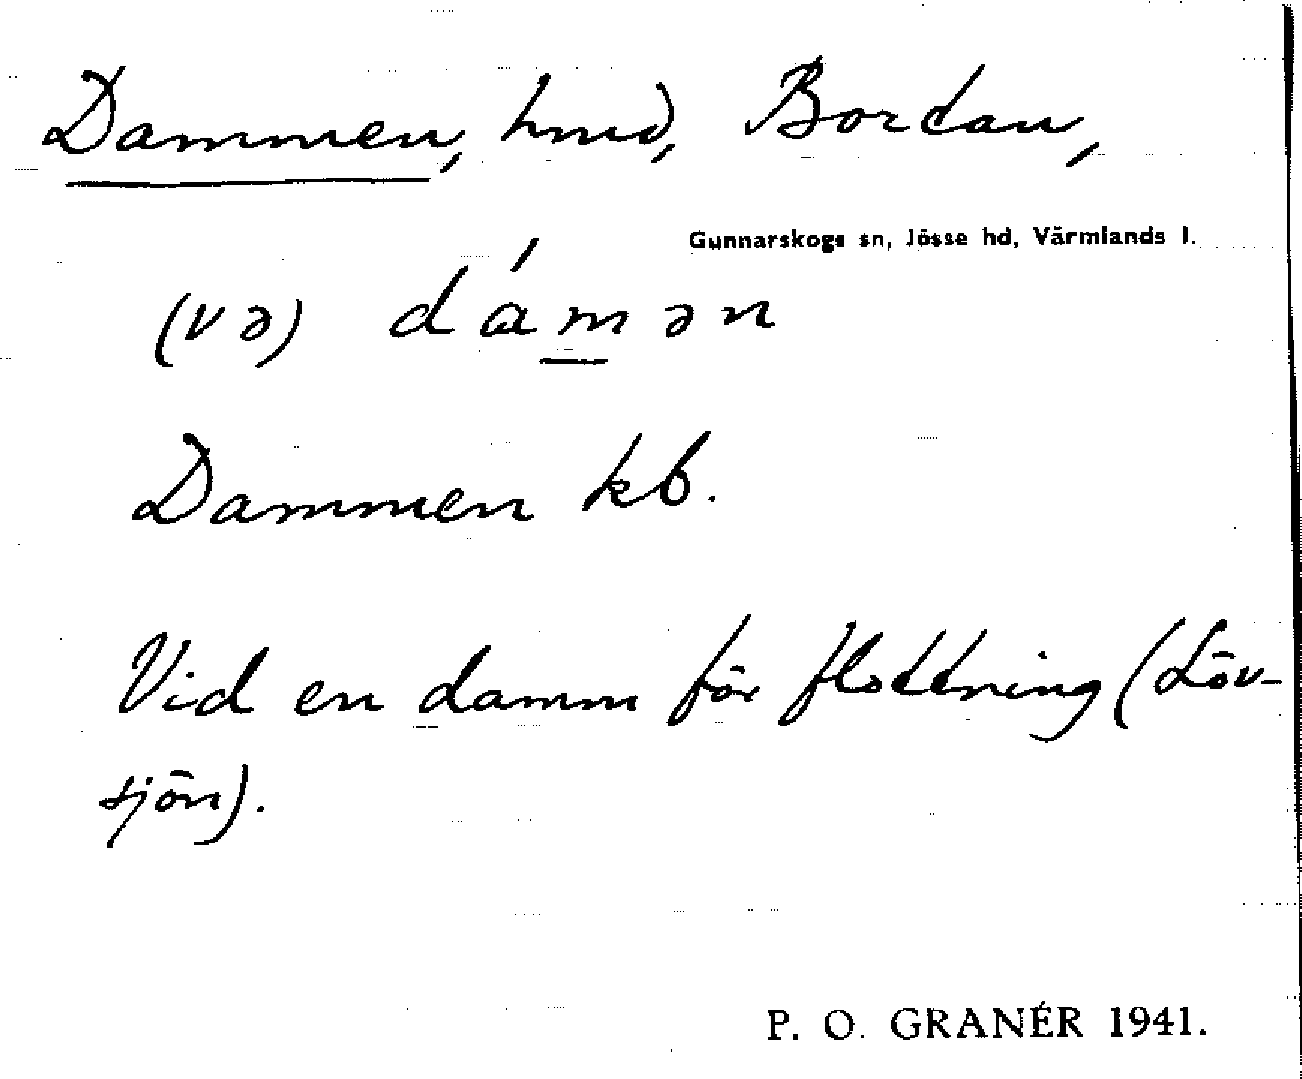 Dammen, hmd, Bortan,
Gunnarskogs sn, Jösse hd, Värmlands l.
(və) dámən
Dammen kb.
Vid en damm för flottning (Löv-
sjön).
P. O. GRANÉR 1941.